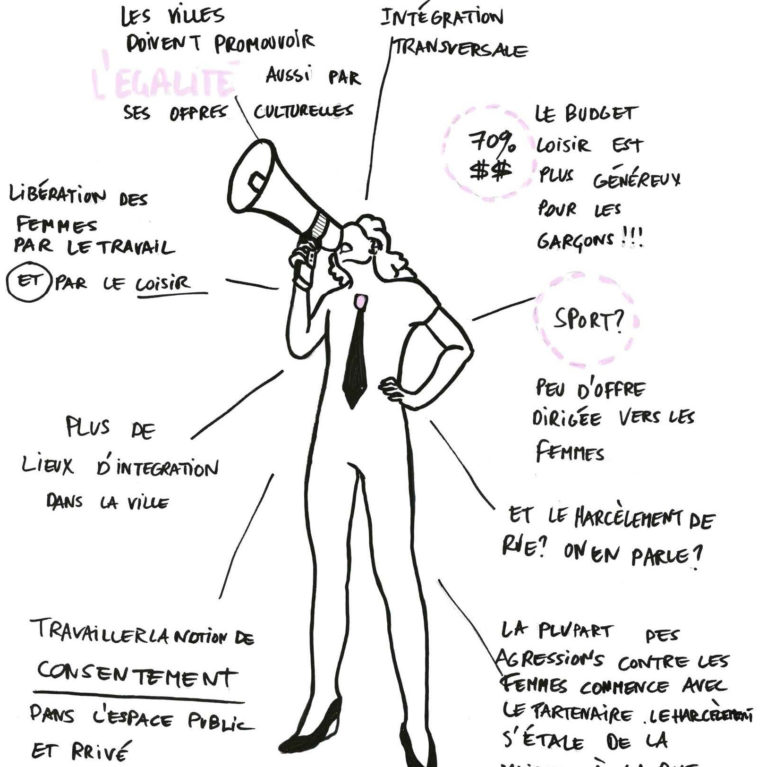 LES VILLES
DOIVENT PROMOUVOIR
L'EGALITÉ AUSSI PAR
SES OFFRES CULTURELLES
INTÉGRATION
TRANSVERSALE
70%
$$
LE BUDGET
LOISIR EST
PLUS GÉNÉREUX
POUR LES
GARÇONS!!!
LIBÉRATION DES
FEMMES
PAR LE TRAVAIL
ET PAR LE LOISIR
SPORT?
PEU D'OFFRE
DIRIGÉE VERS LES
FEMMES
PLUS DE
LIEUX D'INTEGRATION
DANS LA VILLE
ET LE HARCÈLEMENT DE
RUE? ON EN PARLE?
TRAVAILLER LA NOTION DE
CONSENTEMENT
DANS L'ESPACE PUBLIC
ET PRIVÉ
LA PLUPART DES
AGRESSIONS CONTRE LES
FEMMES COMMENCE AVEC
LE PARTENAIRE. LE HARCÈLEMENT
S'ÉTALE DE LA